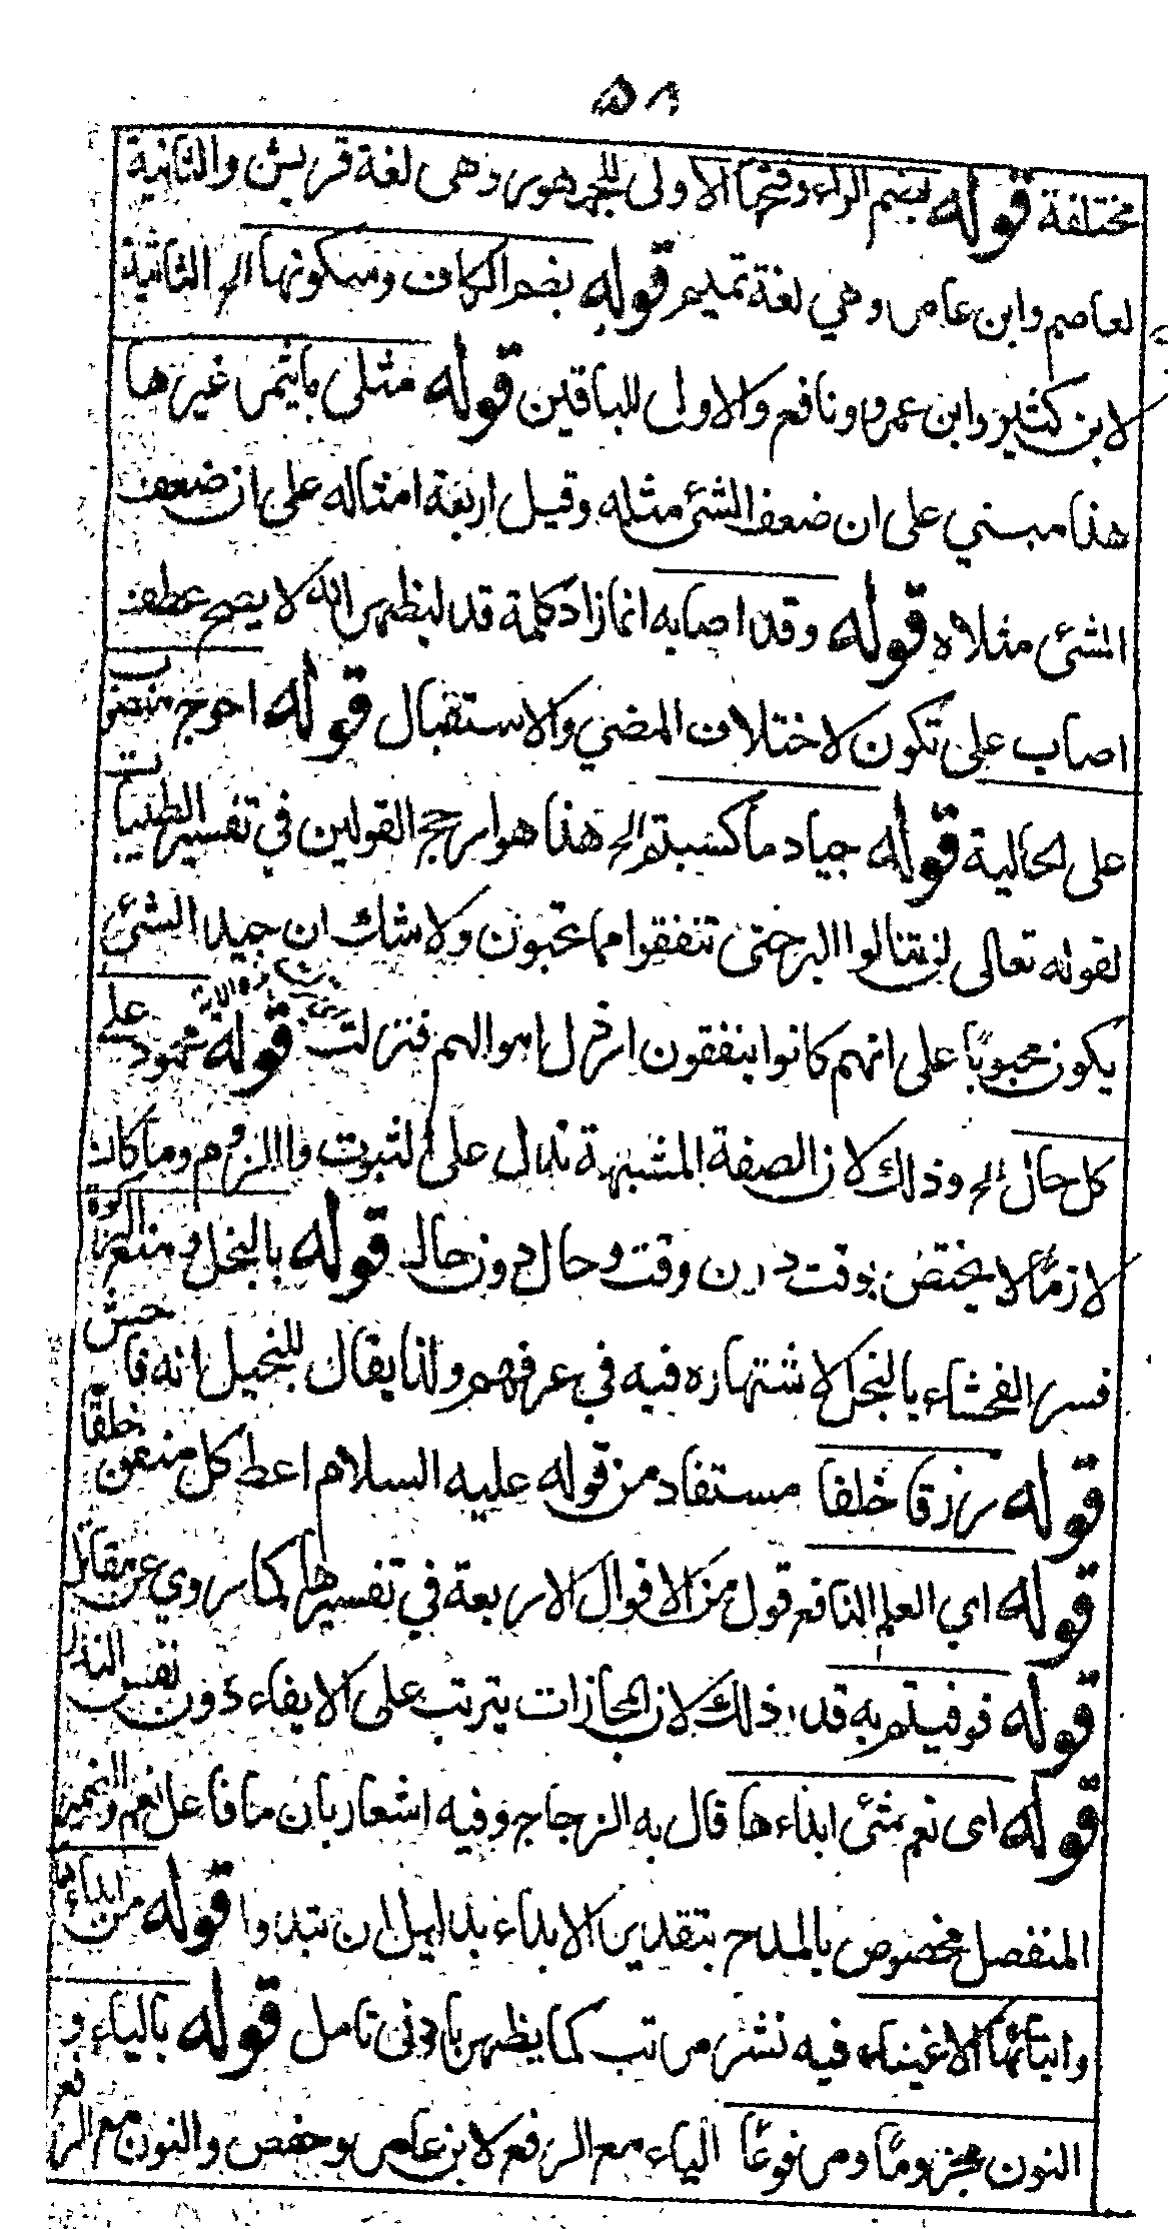 ٥٨
مختلفة قوله بضم الراء وفتحها الاولى للجمهور وهى لغة قريش والثانية
لعاصم وابن عامر وهي لغة تميم قوله بضم الكاف وسكونها الخ الثانية
لابن كثير وابن عمرو ونافع والاولى للباقين قوله مثلى مايثمر غيرها
هذا مبني على ان ضعف الشئ مثله وقيل اربعة امثاله على ان ضعف
الشئ مثلاه قوله وقد اصابه انما زاد كلمة قد ليظهر انه لا يصح عطف
اصاب على تكون لاختلاف المضي والاستقبال قوله احوج منصوب
على الحالية قوله جياد ماكسبتم الخ هذا هو ارجح القولين في تفسير الطيبات
لقوله تعالى لن تنالوا البر حتى تنفقوا مما تحبون ولا شك ان جيد الشئ
يكون محبوبًا على انهم كانوا ينفقون ارذل اموالهم فنزلت قوله محمود على
كل حال الخ وذلك لان الصفة المشبهة تدل على الثبوت واللزوم وما كان
لازمًا لا يختص بوقت دون وقت وحال دون حال قوله بالبخل ومنع الزكوة
فسر الفحشاء بالبخل لاشتهاره فيه في عرفهم ولذا يقال للبخيل انه فاحش
قوله رزقا خلفا مستفاد من قوله عليه السلام اعط كل منفق خلفًا
قوله اي العلم النافع قول من الاقوال الاربعة في تفسيرها كما روي عن مقاتل
قوله فوفيتم به قدر ذلك لان المجازات يترتب على الايفاء دون نفس النذر
قوله اى نعم شئ ابداءها قال به الزجاج وفيه اشعار بان ما فاعل نعم والضمير
المنفصل مخصوص بالمدح بتقدير الابداء بدليل ان تبدوا قوله من ابداءها
وايتائها الاغنياء فيه نشر مرتب كما يظهر بادنى تامل قوله بالياء و
النون مجزومًا ومرفوعًا الياء مع الرفع لابن عامر وحفص والنون مع الرفع